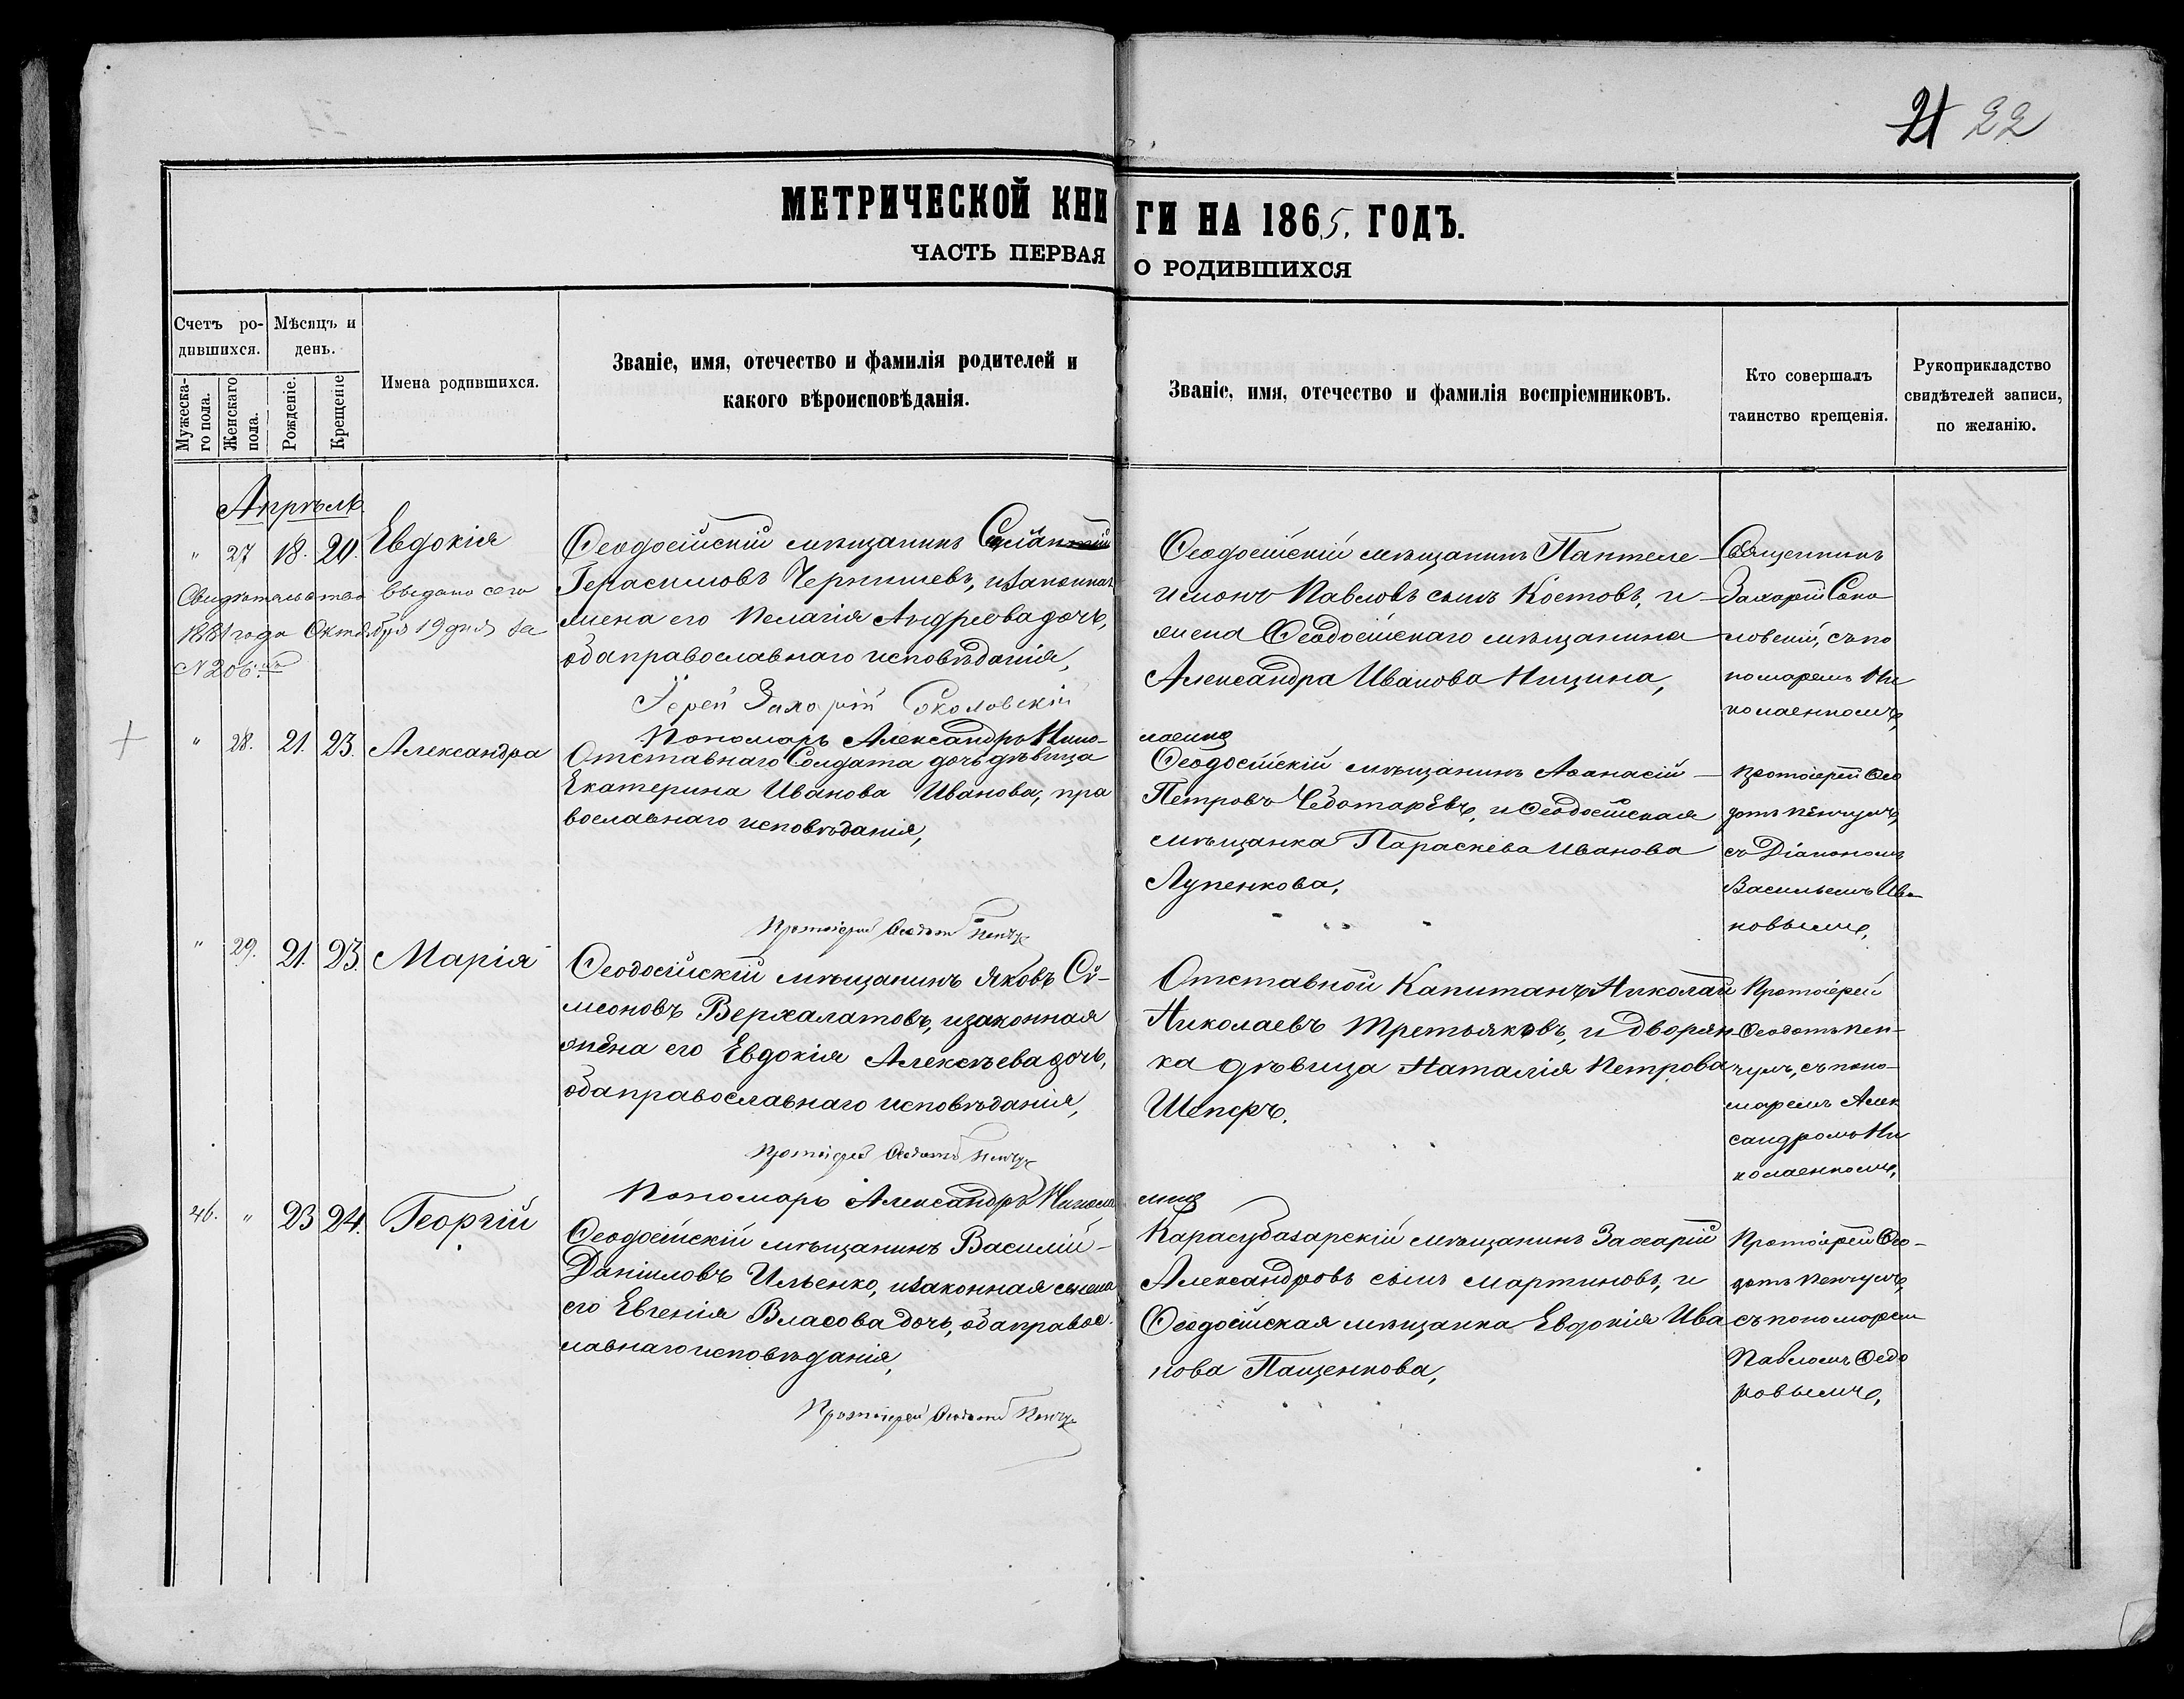 21 22
МЕТРИЧЕСКОЙ КНИГИ НА 1865. ГОДЪ.
ЧАСТЬ ПЕРВАЯ О РОДИВШИХСЯ
Счетъ ро-
дившихся.
Мужеска-
го пола.
Женскаго
пола.
Мѣсяцъ и
день.
Рожденіе.
Крещеніе
Имена родившихся.
Званіе, имя, отечество и фамилія родителей и
какого вѣроисповѣданія.
Званіе, имя, отечество и фамилія воспріемниковъ.
Кто совершалъ
таинство крещенія.
Рукоприкладство
свидѣтелей записи,
по желанію.
Апрѣль
" 27 18. 20. Евдокія
Свидѣтельство выдано сего
1881 года Октября 19 дня за
N 206.
Ѳеодосійскій мѣщанинъ
Герасимовъ Чернышевъ, и законная
жена его Пелагія Андреева дочь,
оба православнаго исповѣданія,
Іерей Захарій Соколовскій
Пономарь Александръ Нико-
лаенко
Ѳеодосійскій мѣщанинъ Пантеле-
имонъ Павловъ сынъ Костовъ, и
жена Ѳеодосійскаго мѣщанина
Александра Иванова Ницина,
Священникъ
Захарій Соко
ловскій, съ по
номаремъ Ни
колаенкомъ,
" 28. 21. 23. Александра
Отставнаго Солдата дочь дѣвица
Екатерина Иванова Иванова, пра
вославнаго исповѣданія,
Протоіерей Ѳеодотъ Пенчулъ
Ѳеодосійскій мѣщанинъ Аѳанасій
Петровъ Чеботарёвъ, и Ѳеодосійская
мѣщанка Параскева Иванова
Лупенкова,
Протоіерей Ѳео
дотъ Пенчулъ,
съ Діакономъ
Васильемъ Ива-
новымъ,
" 29. 21. 23. Марія
Ѳеодосійскій мѣщанинъ Яковъ Си-
меоновъ Верхалатовъ, и законная
жена его Евдокія Алексѣева дочь,
оба православнаго исповѣданія,
Протоіерей Ѳеодотъ Пенчулъ
Пономарь Александръ Никола
Отставной Капитанъ Николай
Николаевъ Третьяковъ, и дворян
ка дѣвица Наталія Петрова
Шепфъ.
Протоіерей
Ѳеодотъ Пен-
чулъ, съ поно-
маремъ Алек
сандромъ Ни
колаенкомъ,
46. " 23 24. Георгій
Ѳеодосійскій мѣщанинъ Василій
Даніиловъ Ильенко, и законная жена
его Евгенія Власова дочь, оба правос-
лавнаго исповѣданія,
Протоіерей Ѳеодотъ Пенчулъ
Карасубазарскій мѣщанинъ Захарій
Александровъ сынъ Мартиновъ, и
Ѳеодосійская мѣщанка Евдокія Ива
нова Пащенкова,
Протоіерей Ѳео-
дотъ Пенчулъ,
съ пономаремъ
Павломъ Ѳедо
ровымъ,